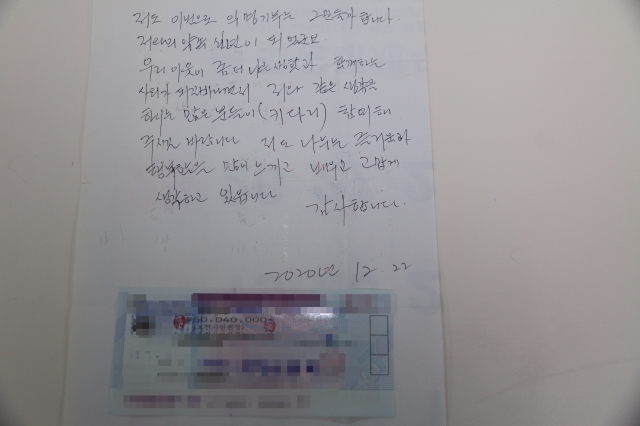 저도 이번으로 익명기부는 그만둘까 합니다.
저와의 약속 실현이 되었군요
우리 이웃이 좀 더 나은 생활과 함께하는
사회가 되길 바라면서 저와 같은 생각을
하시는 많은 분들이(키다리) 함께해
주시길 바랍니다 저도 나누는 즐거움과
행복함을 많이 느끼고 배우고 고맙게
생각하고 있습니다
감사합니다.
2020년 12. 22
₩50,040,000